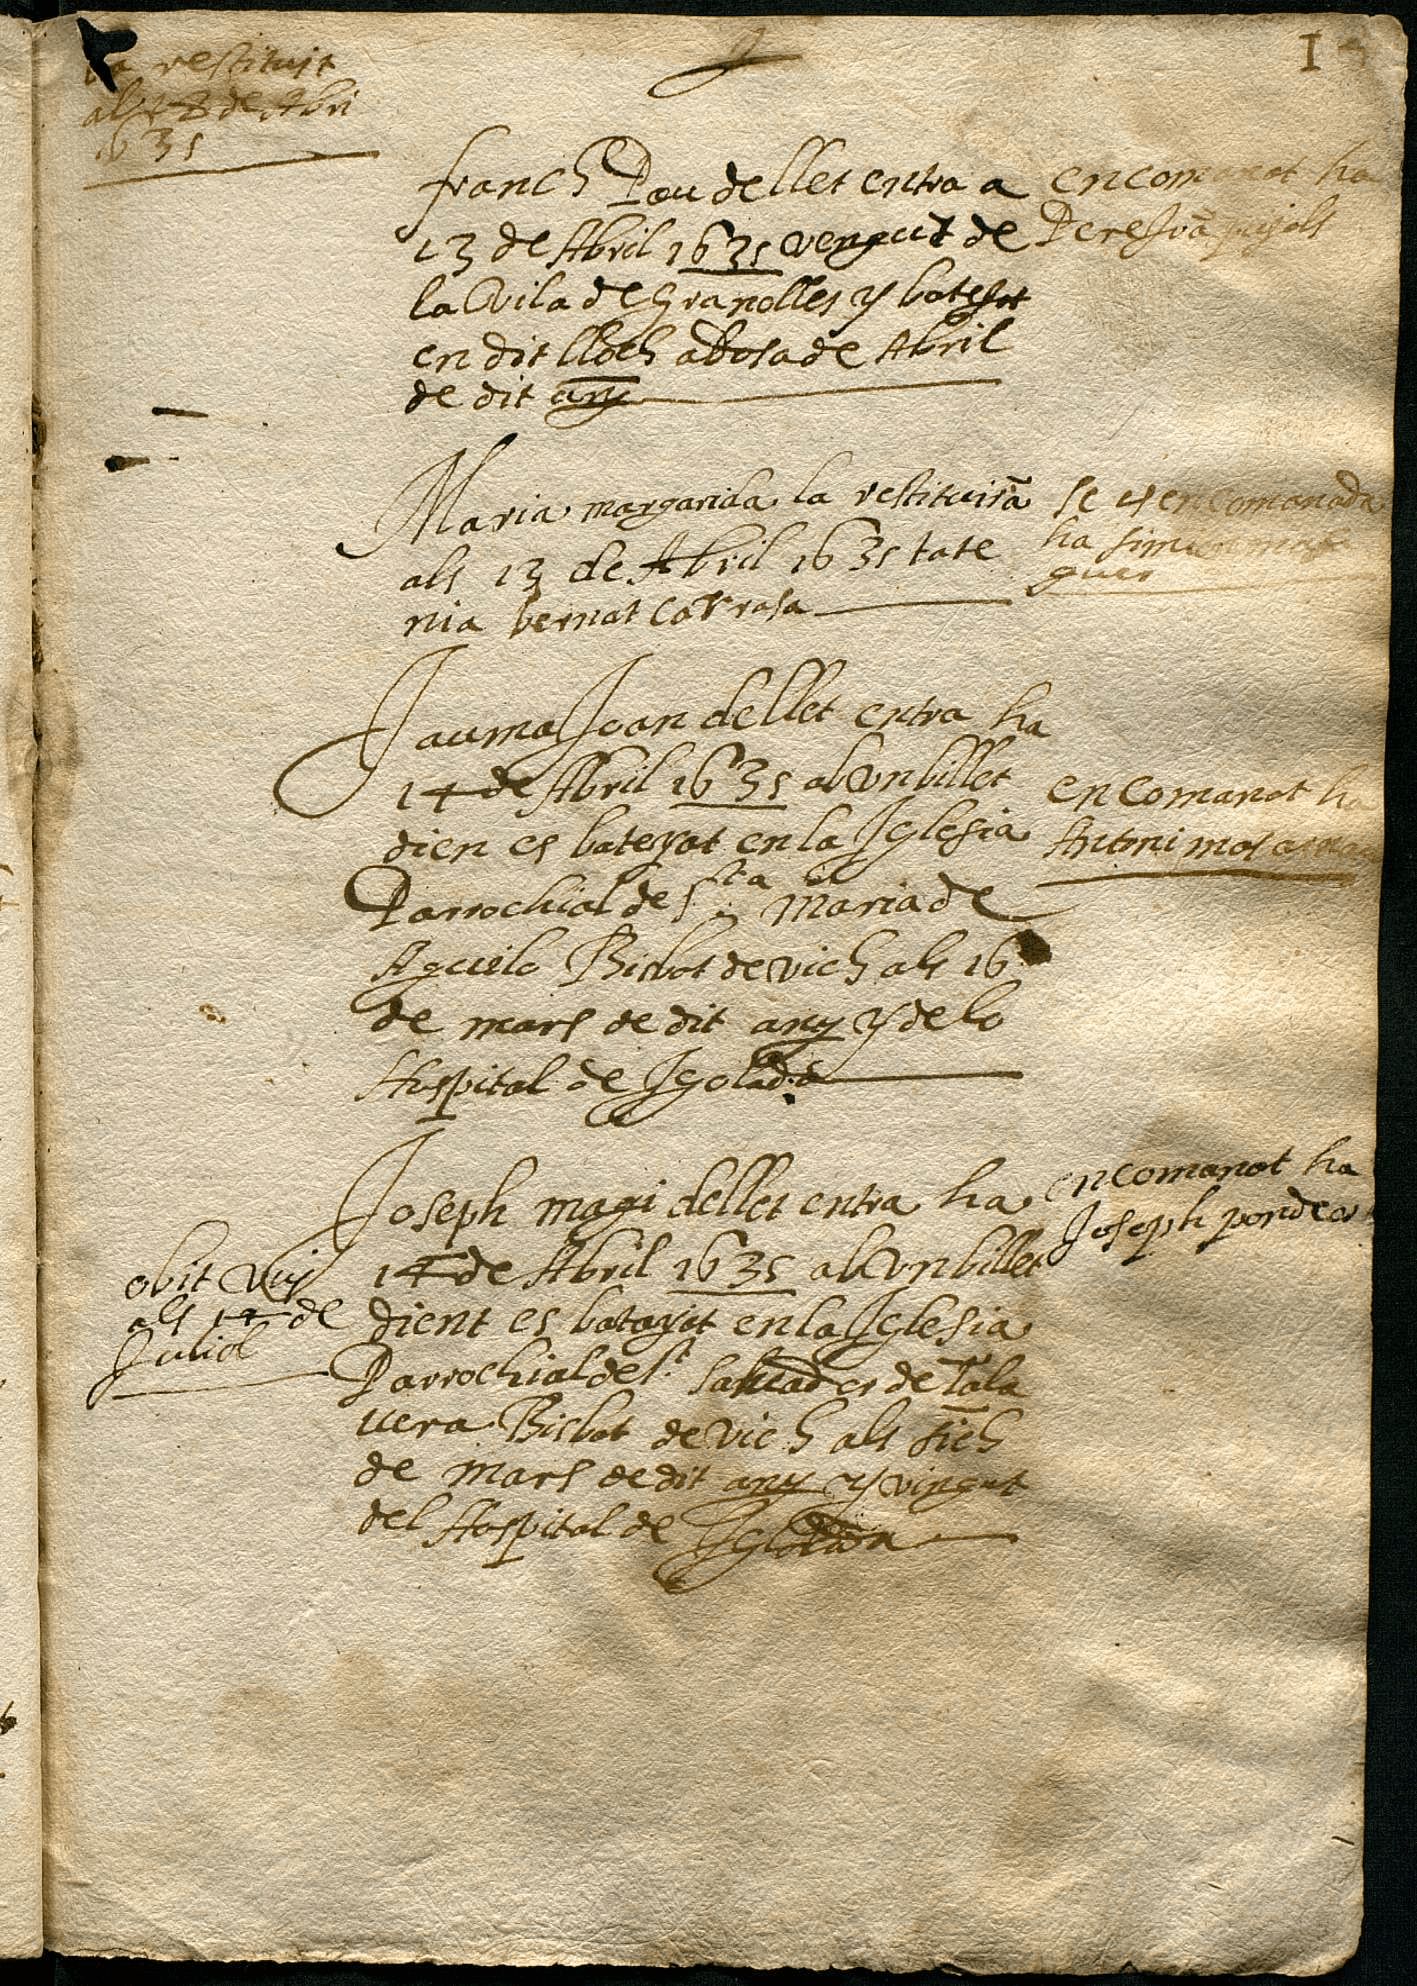 restituit
als 28 de Abri
1635
franch Pau de llet entra a
13 de Abril 1635 vengut de
la Vila de Granolles y bateyat
en dit lloch a dosa de Abril
de dit any
encomanat ha
Pere Joā pujols
Maria margarida la restituirā
als 13 de Abril 1635 tate
nia bernat Carrasa
se es encomanada
ha simon
guer
Jauma Joan de llet entra ha
14 de Abril 1635 ab Un billet
dien es bateyat en la Iglesia
Parrochial de Sta Maria de
Aguilo Bisbat de vich als 16
de mars de dit any y de lo
Hospital de Igolada
encomanat ha
Antoni
Joseph magi de llet entra ha
14 de Abril 1635 ab Un billet
dient es batayat en la Iglesia
Parrochial de St Saluador de Tala
uera Bisbat de vich als sich
de mars de dit any y vingut
del Hospital de Iglolada
encomanat ha
Joseph
obit Vuy
als 14 de
Juliol